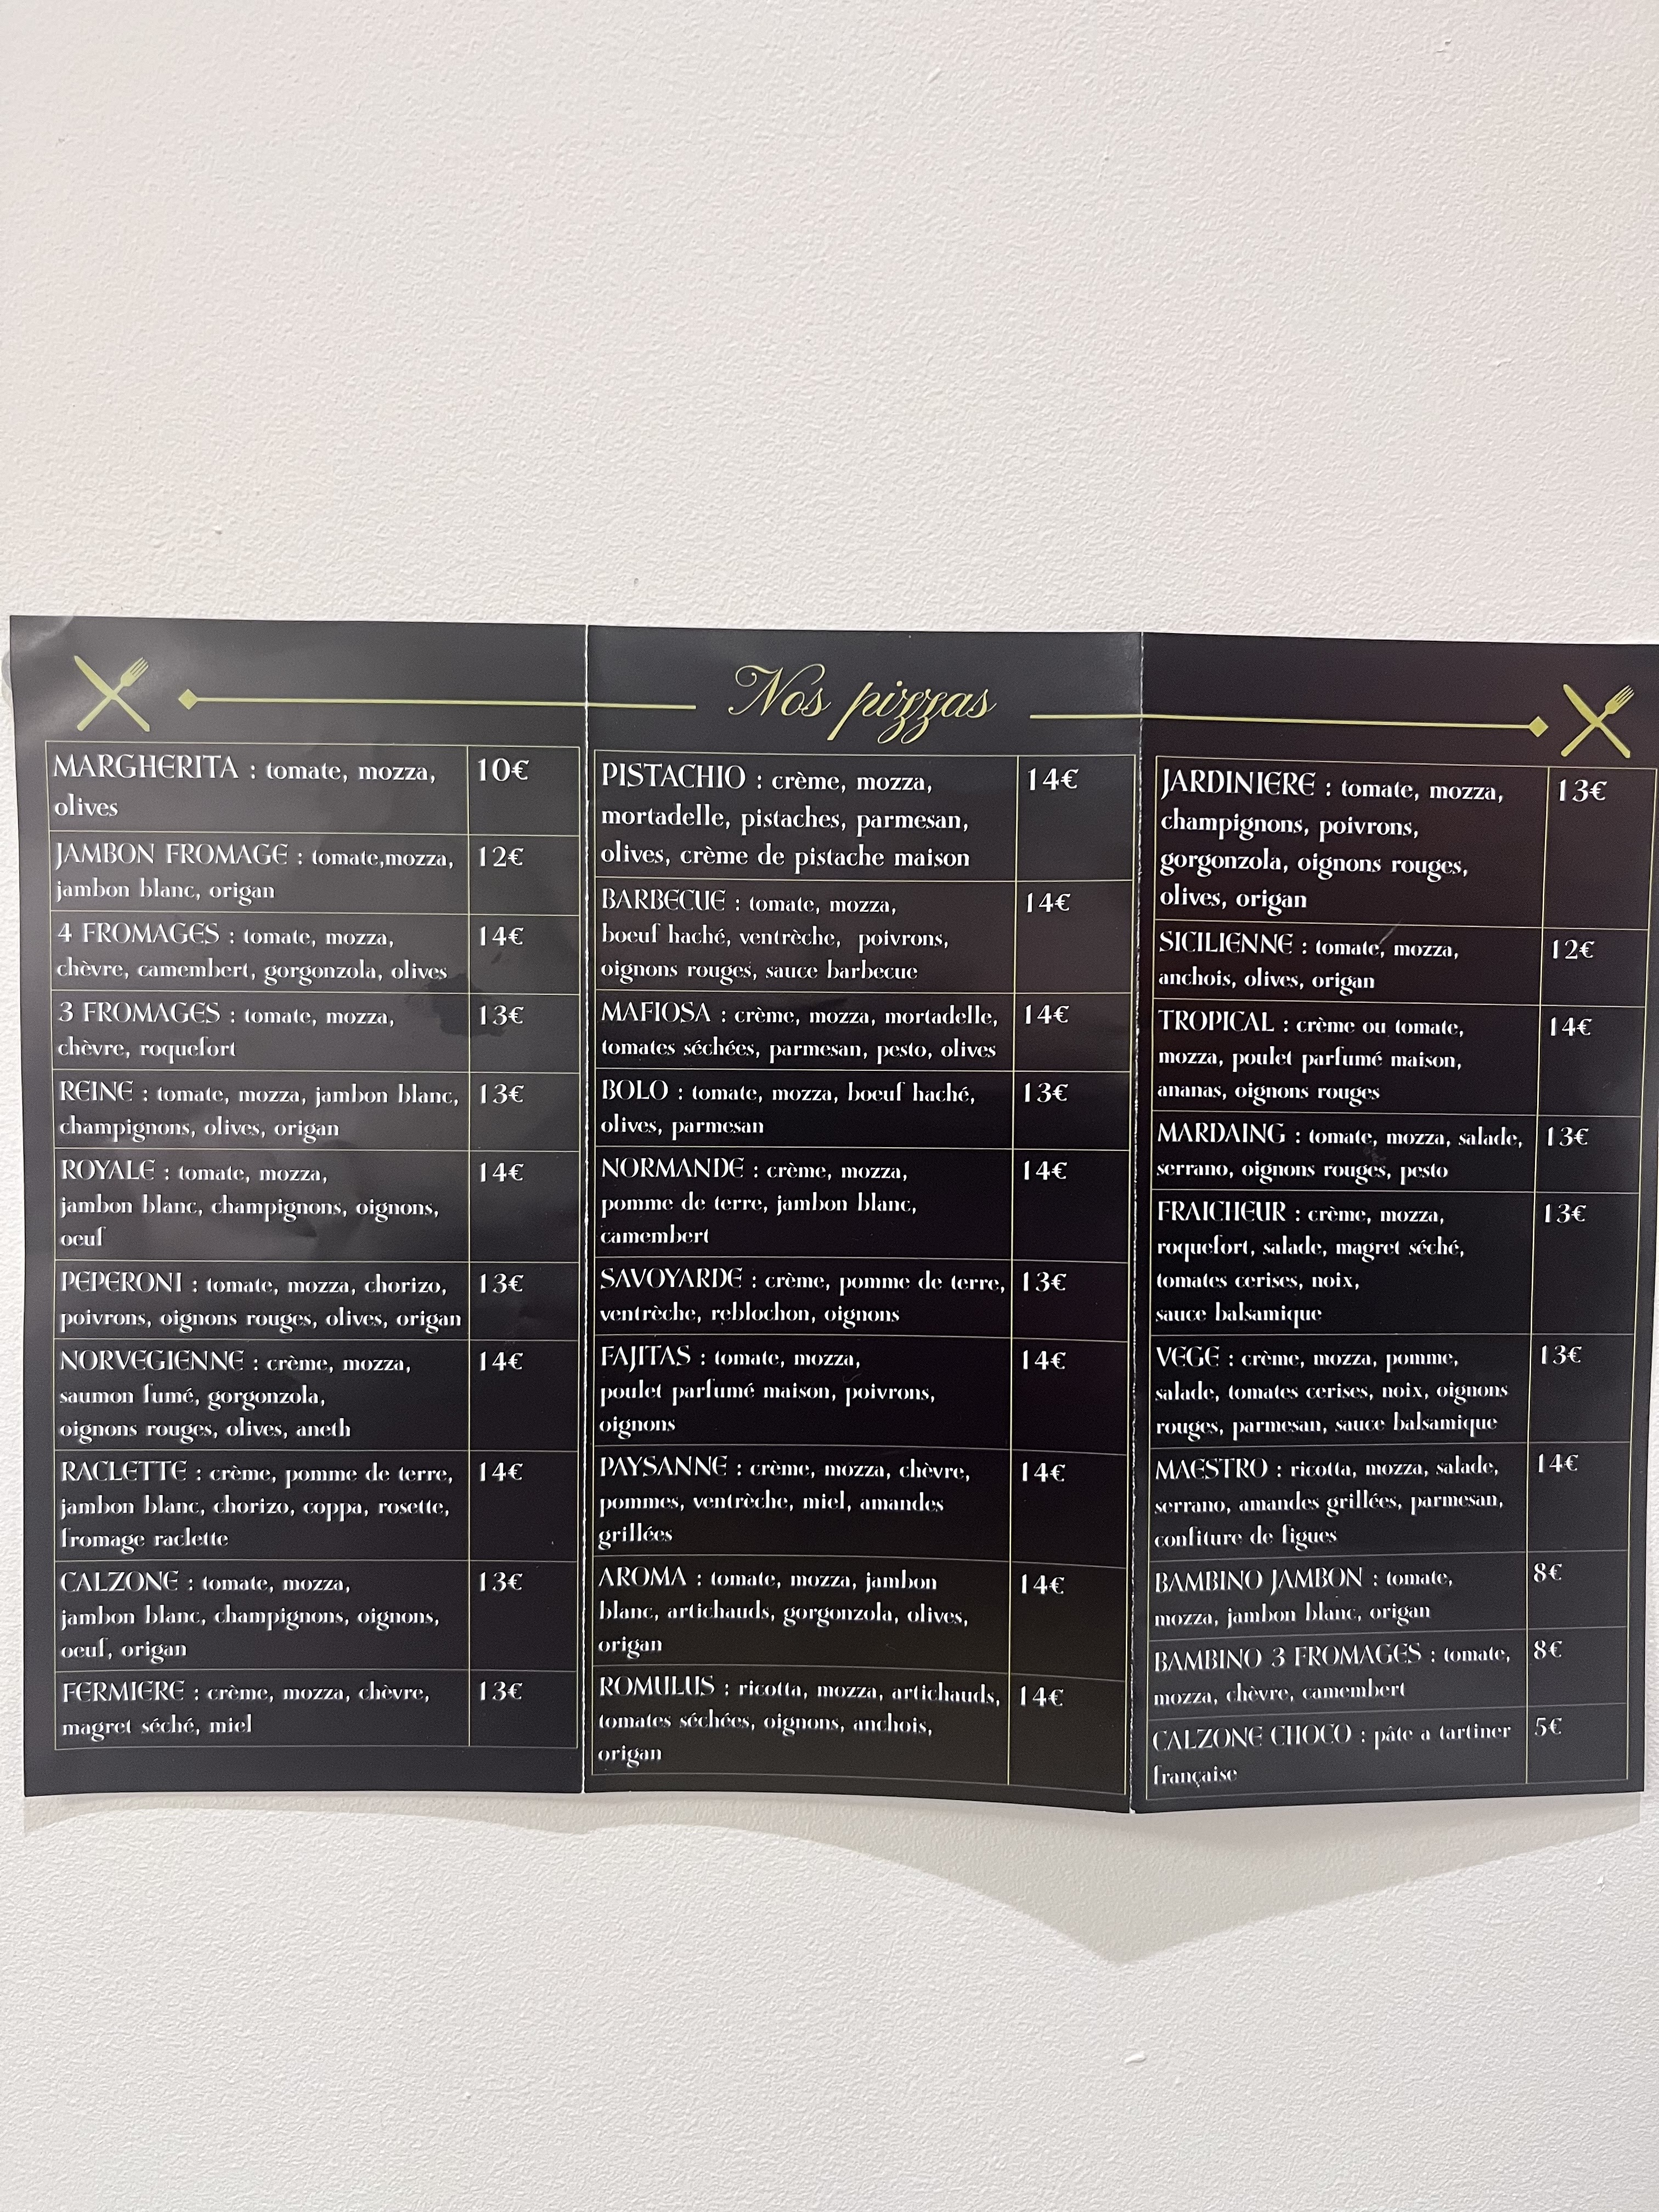 Nos pizzas
MARGHERITA : tomate, mozza,
olives
10€
JAMBON FROMAGE : tomate,mozza,
jambon blanc, origan
12€
4 FROMAGES : tomate, mozza,
chèvre, camembert, gorgonzola, olives
14€
3 FROMAGES : tomate, mozza,
chèvre, roquefort
13€
REINE : tomate, mozza, jambon blanc,
champignons, olives, origan
13€
ROYALE : tomate, mozza,
jambon blanc, champignons, oignons,
oeuf
14€
PEPERONI : tomate, mozza, chorizo,
poivrons, oignons rouges, olives, origan
13€
NORVEGIENNE : crème, mozza,
saumon fumé, gorgonzola,
oignons rouges, olives, aneth
14€
RACLETTE : crème, pomme de terre,
jambon blanc, chorizo, coppa, rosette,
fromage raclette
14€
CALZONE : tomate, mozza,
jambon blanc, champignons, oignons,
oeuf, origan
13€
FERMIERE : crème, mozza, chèvre,
magret séché, miel
13€
PISTACHIO : crème, mozza,
mortadelle, pistaches, parmesan,
olives, crème de pistache maison
14€
BARBECUE : tomate, mozza,
boeuf haché, ventrèche, poivrons,
oignons rouges, sauce barbecue
14€
MAFIOSA : crème, mozza, mortadelle,
tomates séchées, parmesan, pesto, olives
14€
BOLO : tomate, mozza, boeuf haché,
olives, parmesan
13€
NORMANDE : crème, mozza,
pomme de terre, jambon blanc,
camembert
14€
SAVOYARDE : crème, pomme de terre,
ventrèche, reblochon, oignons
13€
FAJITAS : tomate, mozza,
poulet parfumé maison, poivrons,
oignons
14€
PAYSANNE : crème, mozza, chèvre,
pommes, ventrèche, miel, amandes
grillées
14€
AROMA : tomate, mozza, jambon
blanc, artichauds, gorgonzola, olives,
origan
14€
ROMULUS : ricotta, mozza, artichauds,
tomates séchées, oignons, anchois,
origan
14€
JARDINIERE : tomate, mozza,
champignons, poivrons,
gorgonzola, oignons rouges,
olives, origan
13€
SICILIENNE : tomate, mozza,
anchois, olives, origan
12€
TROPICAL : crème ou tomate,
mozza, poulet parfumé maison,
ananas, oignons rouges
14€
MARDAING : tomate, mozza, salade,
serrano, oignons rouges, pesto
13€
FRAICHEUR : crème, mozza,
roquefort, salade, magret séché,
tomates cerises, noix,
sauce balsamique
13€
VEGE : crème, mozza, pomme,
salade, tomates cerises, noix, oignons
rouges, parmesan, sauce balsamique
13€
MAESTRO : ricotta, mozza, salade,
serrano, amandes grillées, parmesan,
confiture de figues
14€
BAMBINO JAMBON : tomate,
mozza, jambon blanc, origan
8€
BAMBINO 3 FROMAGES : tomate,
mozza, chèvre, camembert
8€
CALZONE CHOCO : pâte a tartiner
française
5€